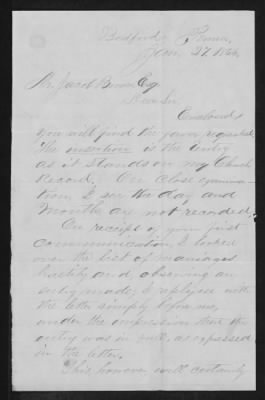 Bedford, Penna,
Jan. 27, 18
Mr. Jacob Esq.
Dear Sir
Enclosed
you will find the form requested.
The insertion is the entry
as it stands on my Church
Record. On close examina-
tion, I see the day and
month are not recorded.
On receipt of your first
communication, I looked
over the list of marriages
hastily and observing an
entry made, I replied with
the letter simply before me,
under the impression that the
entry was in full, as expressed
in the letter.
This however will certainly